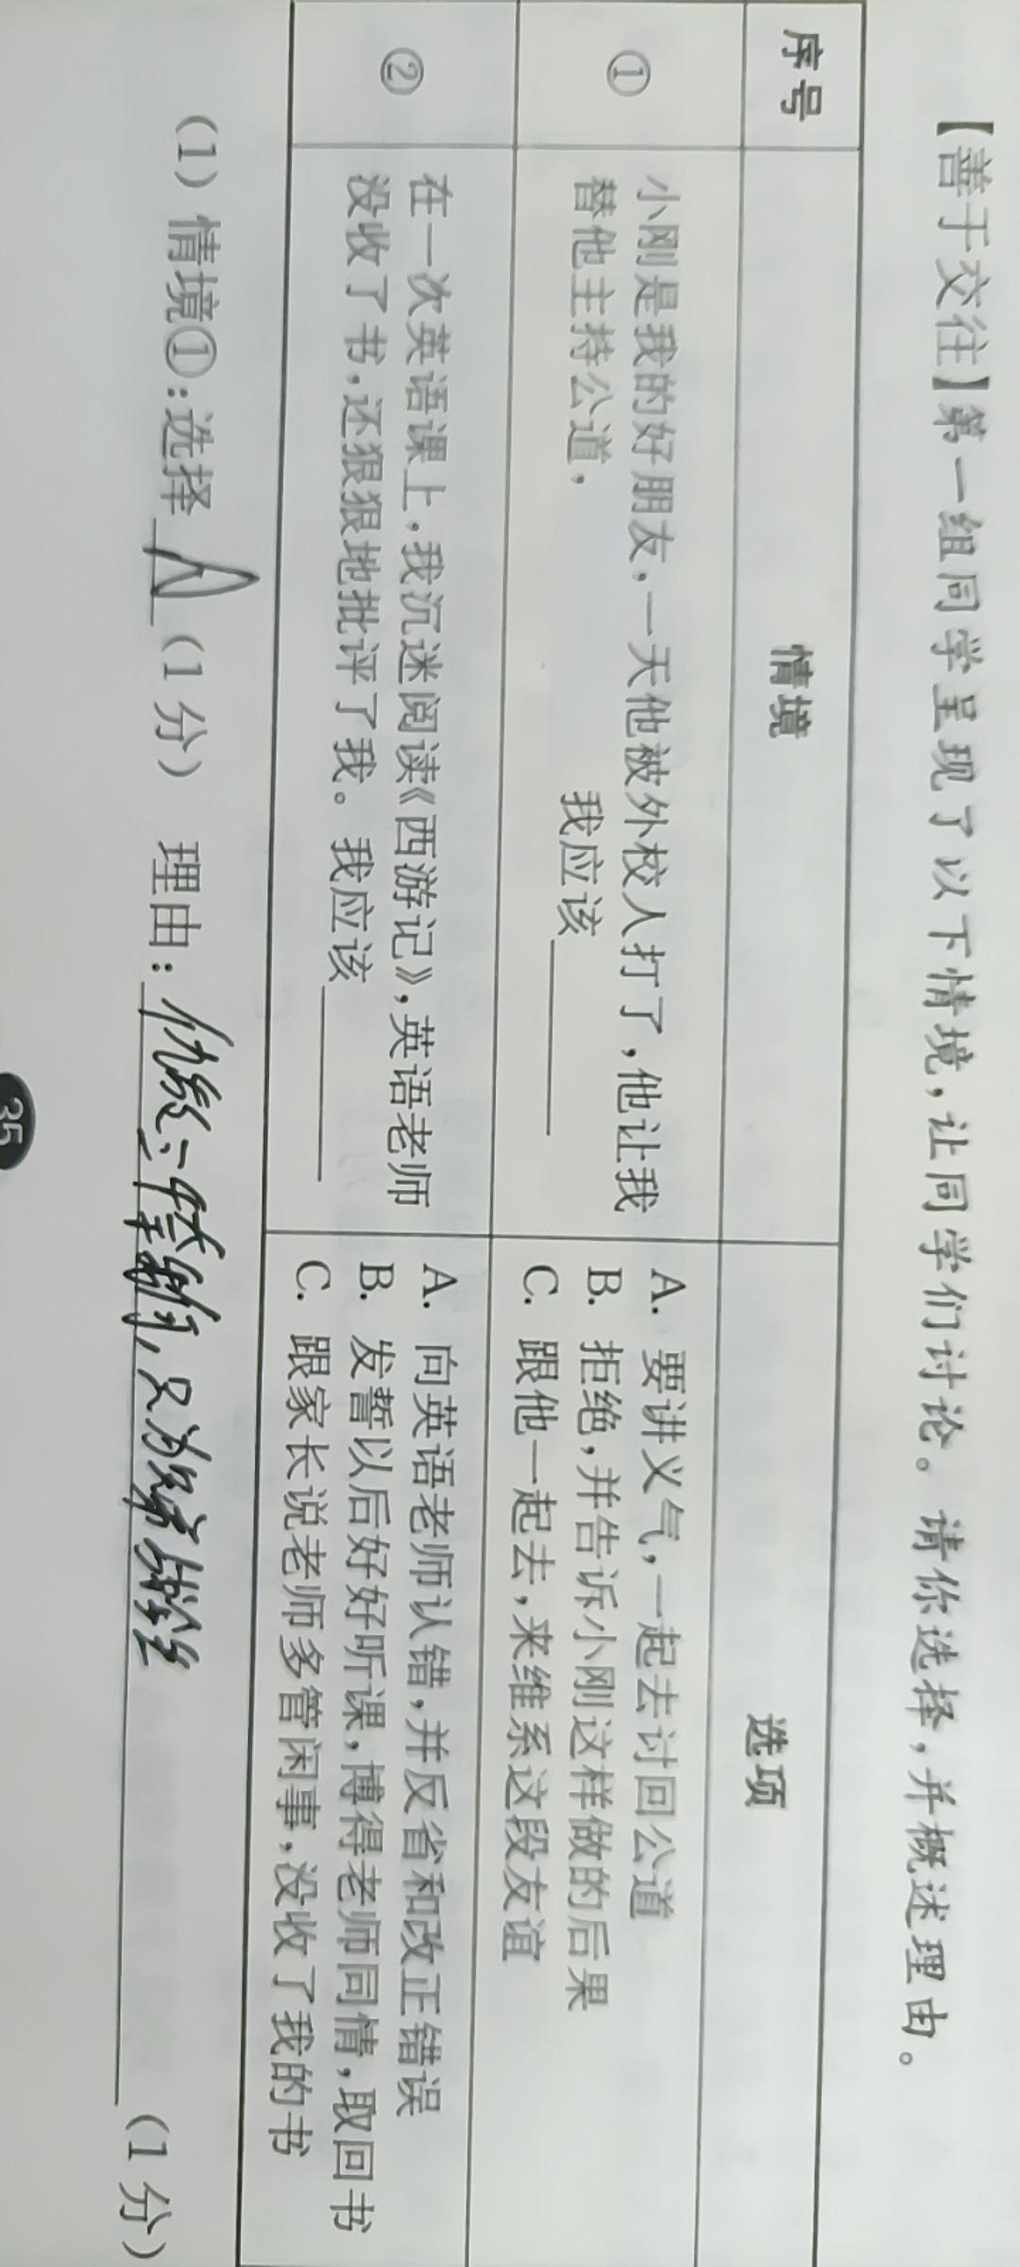 【善于交往】第一组同学呈现了以下情境，让同学们讨论。请你选择，并概述理由。
序号 情境 选项
① 小刚是我的好朋友，一天他被外校人打了，他让我
替他主持公道， 我应该______
A. 要讲义气，一起去讨回公道
B. 拒绝，并告诉小刚这样做的后果
C. 跟他一起去，来维系这段友谊
② 在一次英语课上，我沉迷阅读《西游记》，英语老师
没收了书，还狠狠地批评了我。我应该______
A. 向英语老师认错，并反省和改正错误
B. 发誓以后好好听课，博得老师同情，取回书
C. 跟家长说老师多管闲事，没收了我的书
（1）情境①：选择 A （1分） 理由： 只为 （1分）
35